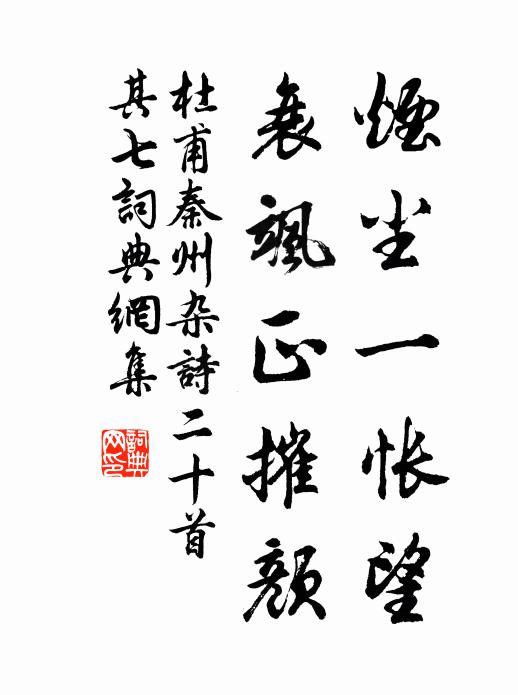 煙尘一怅望
衰颯正摧顏
杜甫秦州杂詩二十首
其七詞典網集
詞典
网印